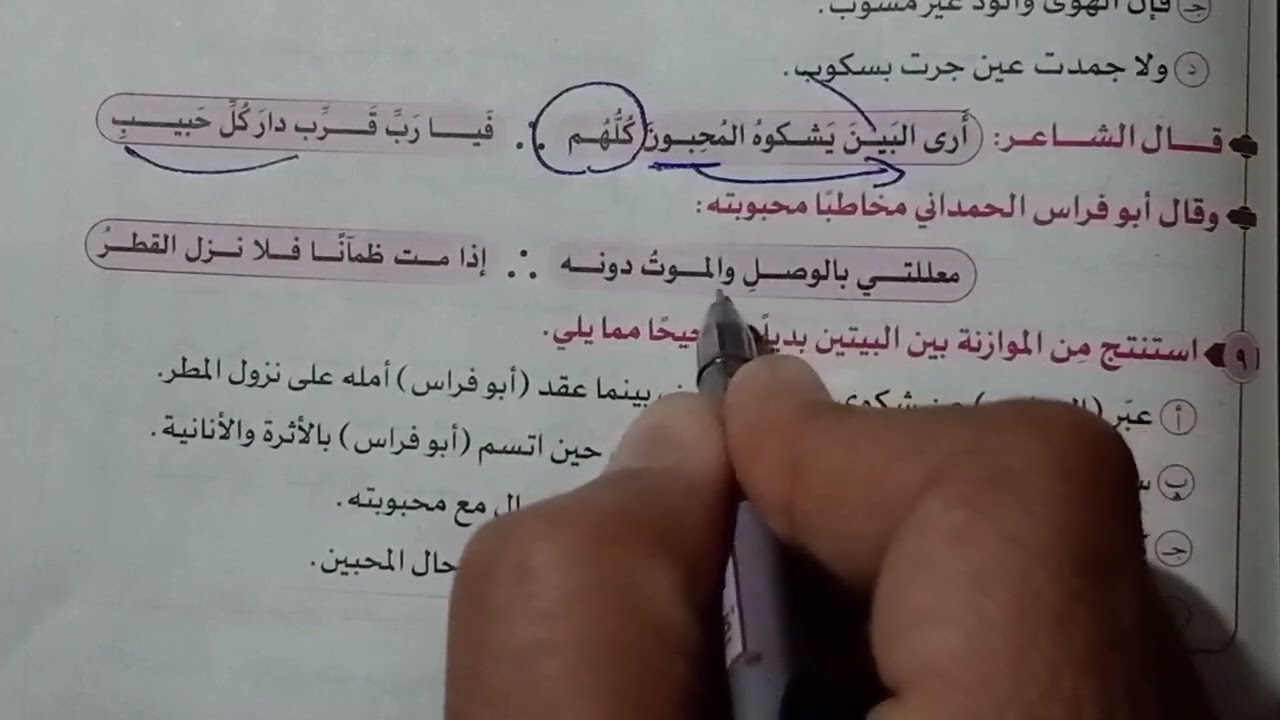 جـ فإن الهوى والود غير مشوب.
د ولا جمدت عين جرت بسكوب.
قـال الشـاعـر: أَرى البَيـنَ يَشكوهُ المُحِبـونَ كُلُّهُم ∴ فَيـا رَبِّ قَـرِّب دارَ كُلِّ حَبيـبِ
وقال أبو فراس الحمداني مخاطبًا محبوبته:
معللتـي بالوصـلِ والمـوتُ دونـه ∴ إذا مـت ظمآنًـا فـلا نـزل القطـرُ
٩ استنتج مِن الموازنة بين البيتين مما يلي.
أ عبّر بينما عقد (أبو فراس) أمله على نزول المطر.
ب حين اتسم (أبو فراس) بالأثرة والأنانية.
جـ مع محبوبته.
حال المحبين.